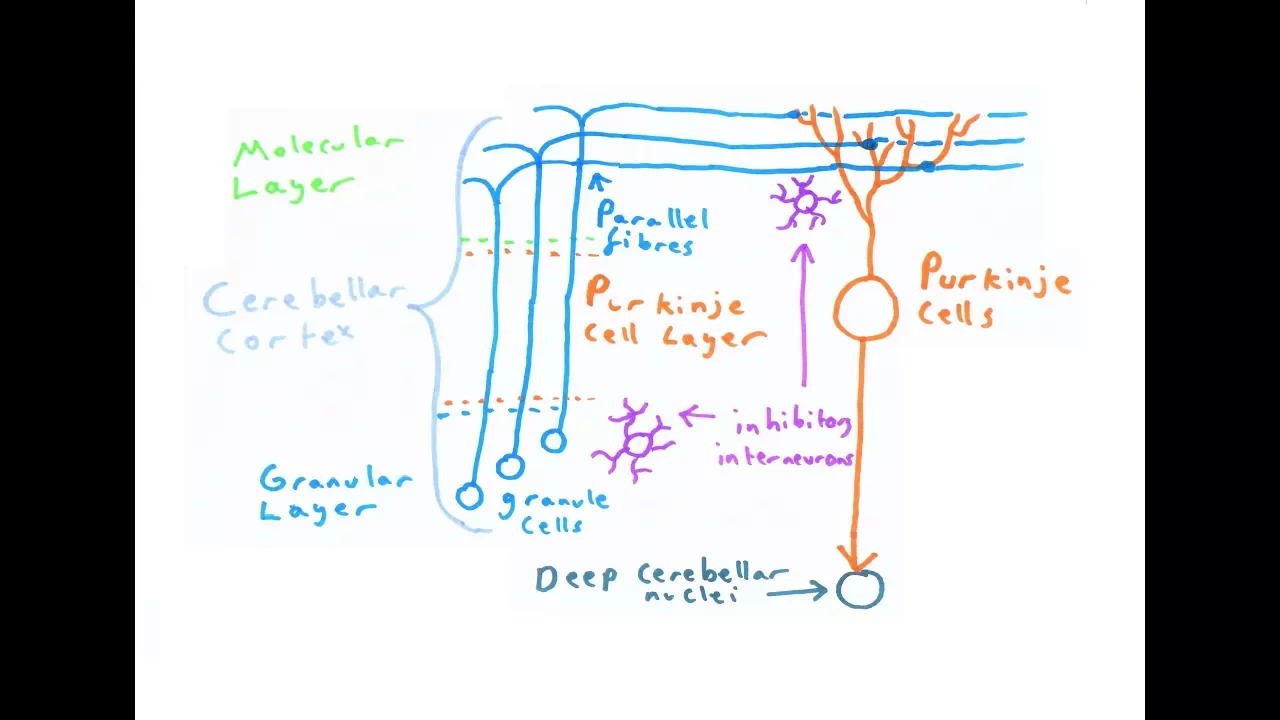 Molecular
Layer
Parallel
fibres
Cerebellar
Cortex
Purkinje
Cell Layer
Purkinje
Cells
inhibitory
interneurons
Granular
Layer
granule
Cells
Deep Cerebellar
nuclei